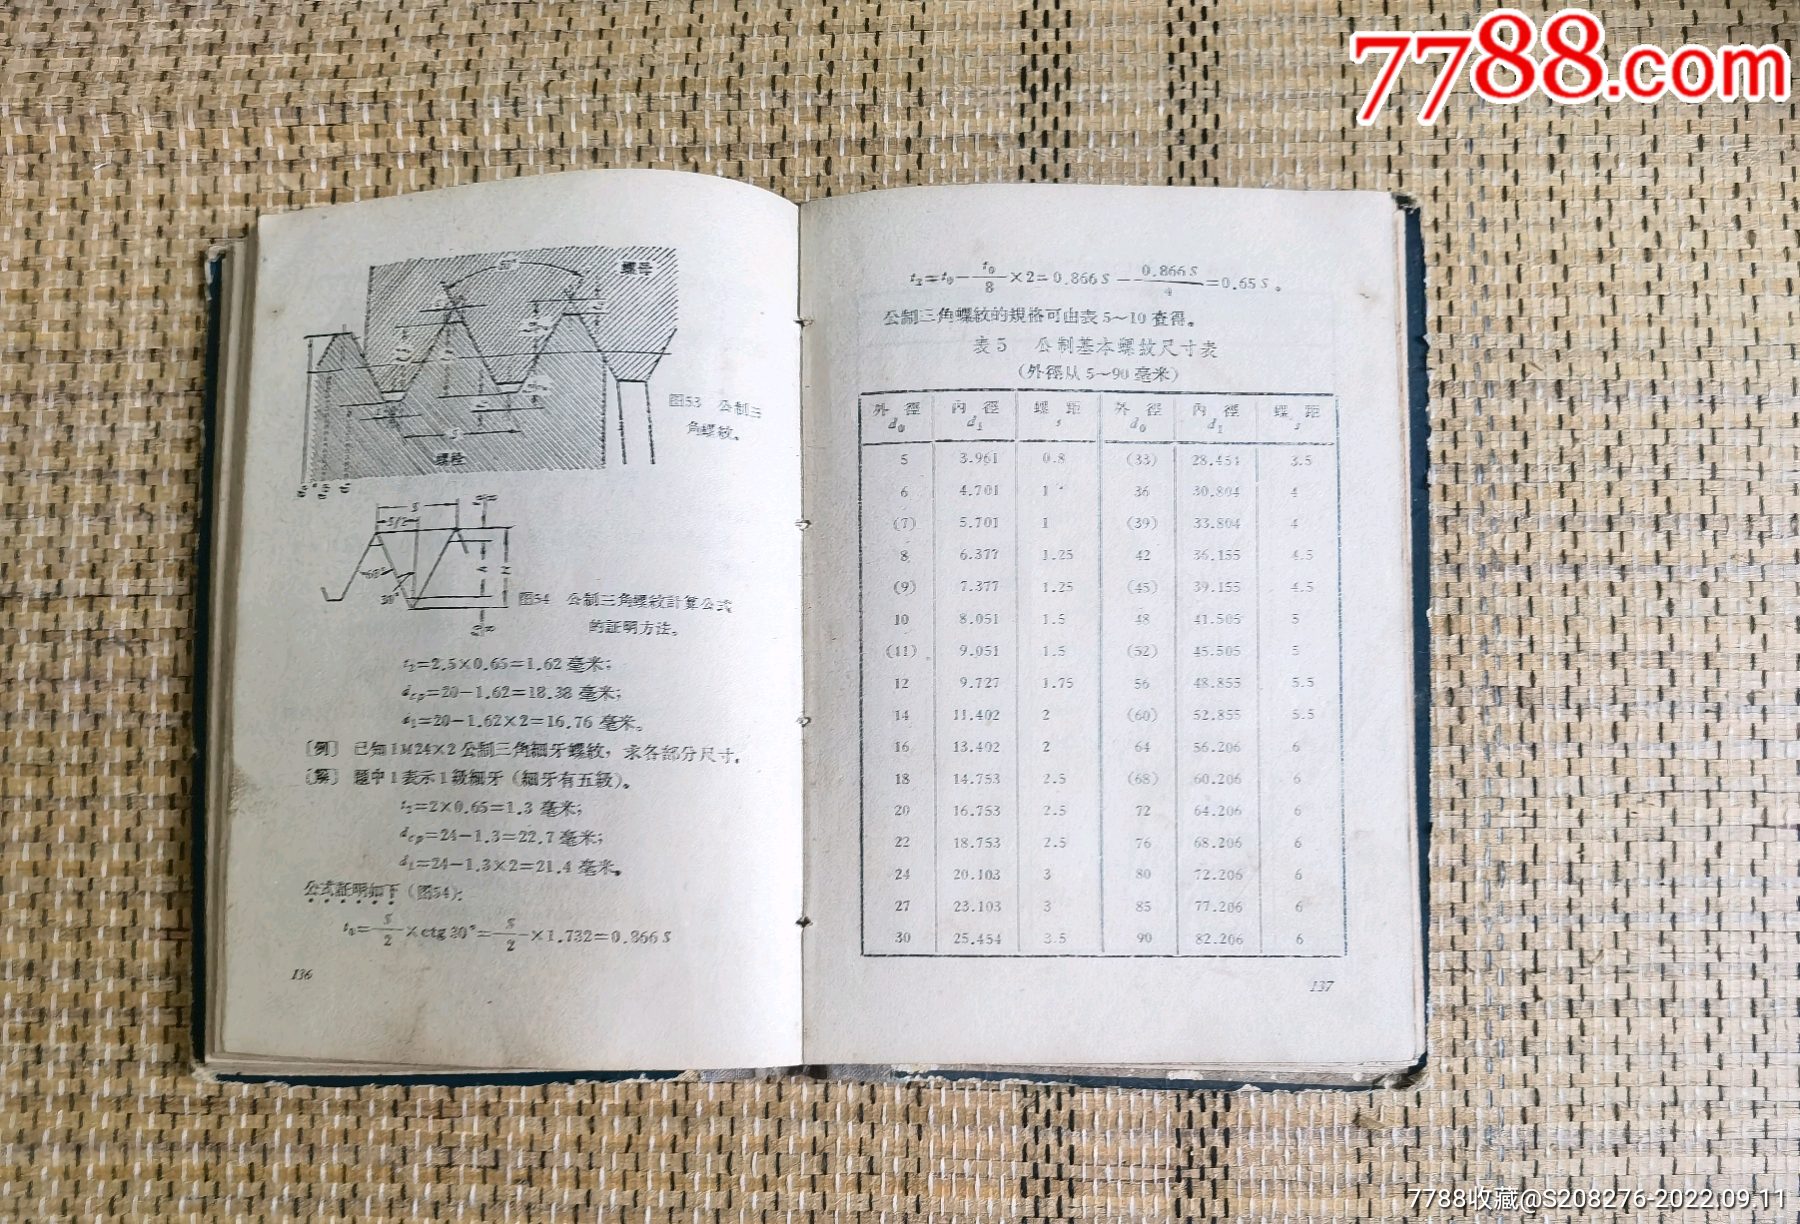 7788.com
螺母
60°
图53 公制三
角螺紋。
S
螺栓
S
S/2
60°
30°
图54 公制三角螺紋計算公式
的証明方法。
t₂=2.5×0.65=1.62 毫米;
dcp=20-1.62=18.38 毫米;
d₁=20-1.62×2=16.76 毫米。
〔例〕 已知1M24×2公制三角細牙螺紋，求各部分尺寸。
〔解〕 題中1表示1級細牙（細牙有五級）。
t₂=2×0.65=1.3 毫米;
dcp=24-1.3=22.7 毫米;
d₁=24-1.3×2=21.4 毫米。
公式証明如下（图54）:
t₀=S/2×ctg30°=S/2×1.732=0.866S
136
t₂=t₀-t₀/8×2=0.866S-0.866S/4=0.65S。
公制三角螺紋的規格可由表5～10查得。
表5 公制基本螺紋尺寸表
（外徑从5～90毫米）
外徑 d₀ 內徑 d₁ 螺距 s 外徑 d₀ 內徑 d₁ 螺距 s
5 3.961 0.8 (33) 28.451 3.5
6 4.701 1 36 30.804 4
(7) 5.701 1 (39) 33.804 4
8 6.377 1.25 42 36.155 4.5
(9) 7.377 1.25 (45) 39.155 4.5
10 8.051 1.5 48 41.505 5
(11) 9.051 1.5 (52) 45.505 5
12 9.727 1.75 56 48.855 5.5
14 11.402 2 (60) 52.855 5.5
16 13.402 2 64 56.206 6
18 14.753 2.5 (68) 60.206 6
20 16.753 2.5 72 64.206 6
22 18.753 2.5 76 68.206 6
24 20.103 3 80 72.206 6
27 23.103 3 85 77.206 6
30 25.454 3.5 90 82.206 6
137
7788收藏@S208276-2022.09.11